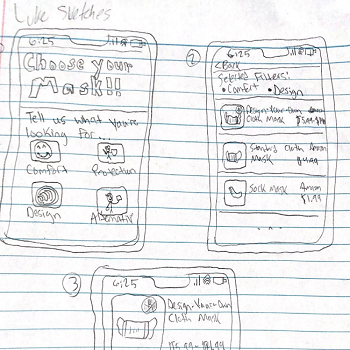 Luke Sketches
6:25
Choose your
Mask!!
Tell us what you're
looking for...
Comfort
Protection
Design
2
6:25
<Back
Selected Filters:
• Comfort • Design
Design-Your-Own
Cloth Mask
Standard Cloth
Mask
Sock Mask
$1.99
...
3
6:25
Design-Your-Own
Cloth Mask